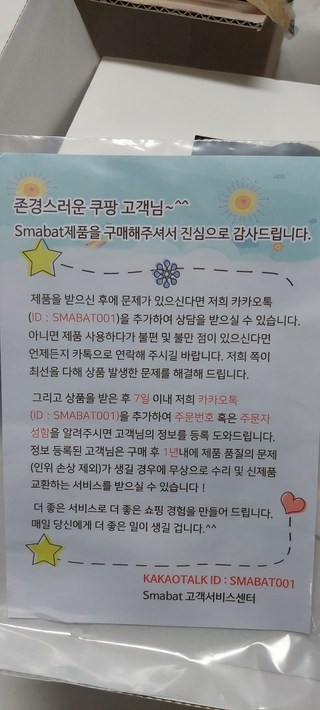 존경스러운 쿠팡 고객님~^^
Smabat제품을 구매해주셔서 진심으로 감사드립니다.
제품을 받으신 후에 문제가 있으신다면 저희 카카오톡
(ID : SMABAT001)을 추가하여 상담을 받으실 수 있습니다.
아니면 제품 사용하다가 불편 및 불만 점이 있으신다면
언제든지 카톡으로 연락해 주시길 바랍니다. 저희 쪽이
최선을 다해 상품 발생한 문제를 해결해 드립니다.
그리고 상품을 받은 후 7일 이내 저희 카카오톡
(ID : SMABAT001)을 추가하여 주문번호 혹은 주문자
성함을 알려주시면 고객님의 정보를 등록 도와드립니다.
정보 등록된 고객님은 구매 후 1년내에 제품 품질의 문제
(인위 손상 제외)가 생길 경우에 무상으로 수리 및 신제품
교환하는 서비스를 받으실 수 있습니다 !
더 좋은 서비스로 더 좋은 쇼핑 경험을 만들어 드립니다.
매일 당신에게 더 좋은 일이 생길 겁니다.^^
KAKAOTALK ID : SMABAT001
Smabat 고객서비스센터